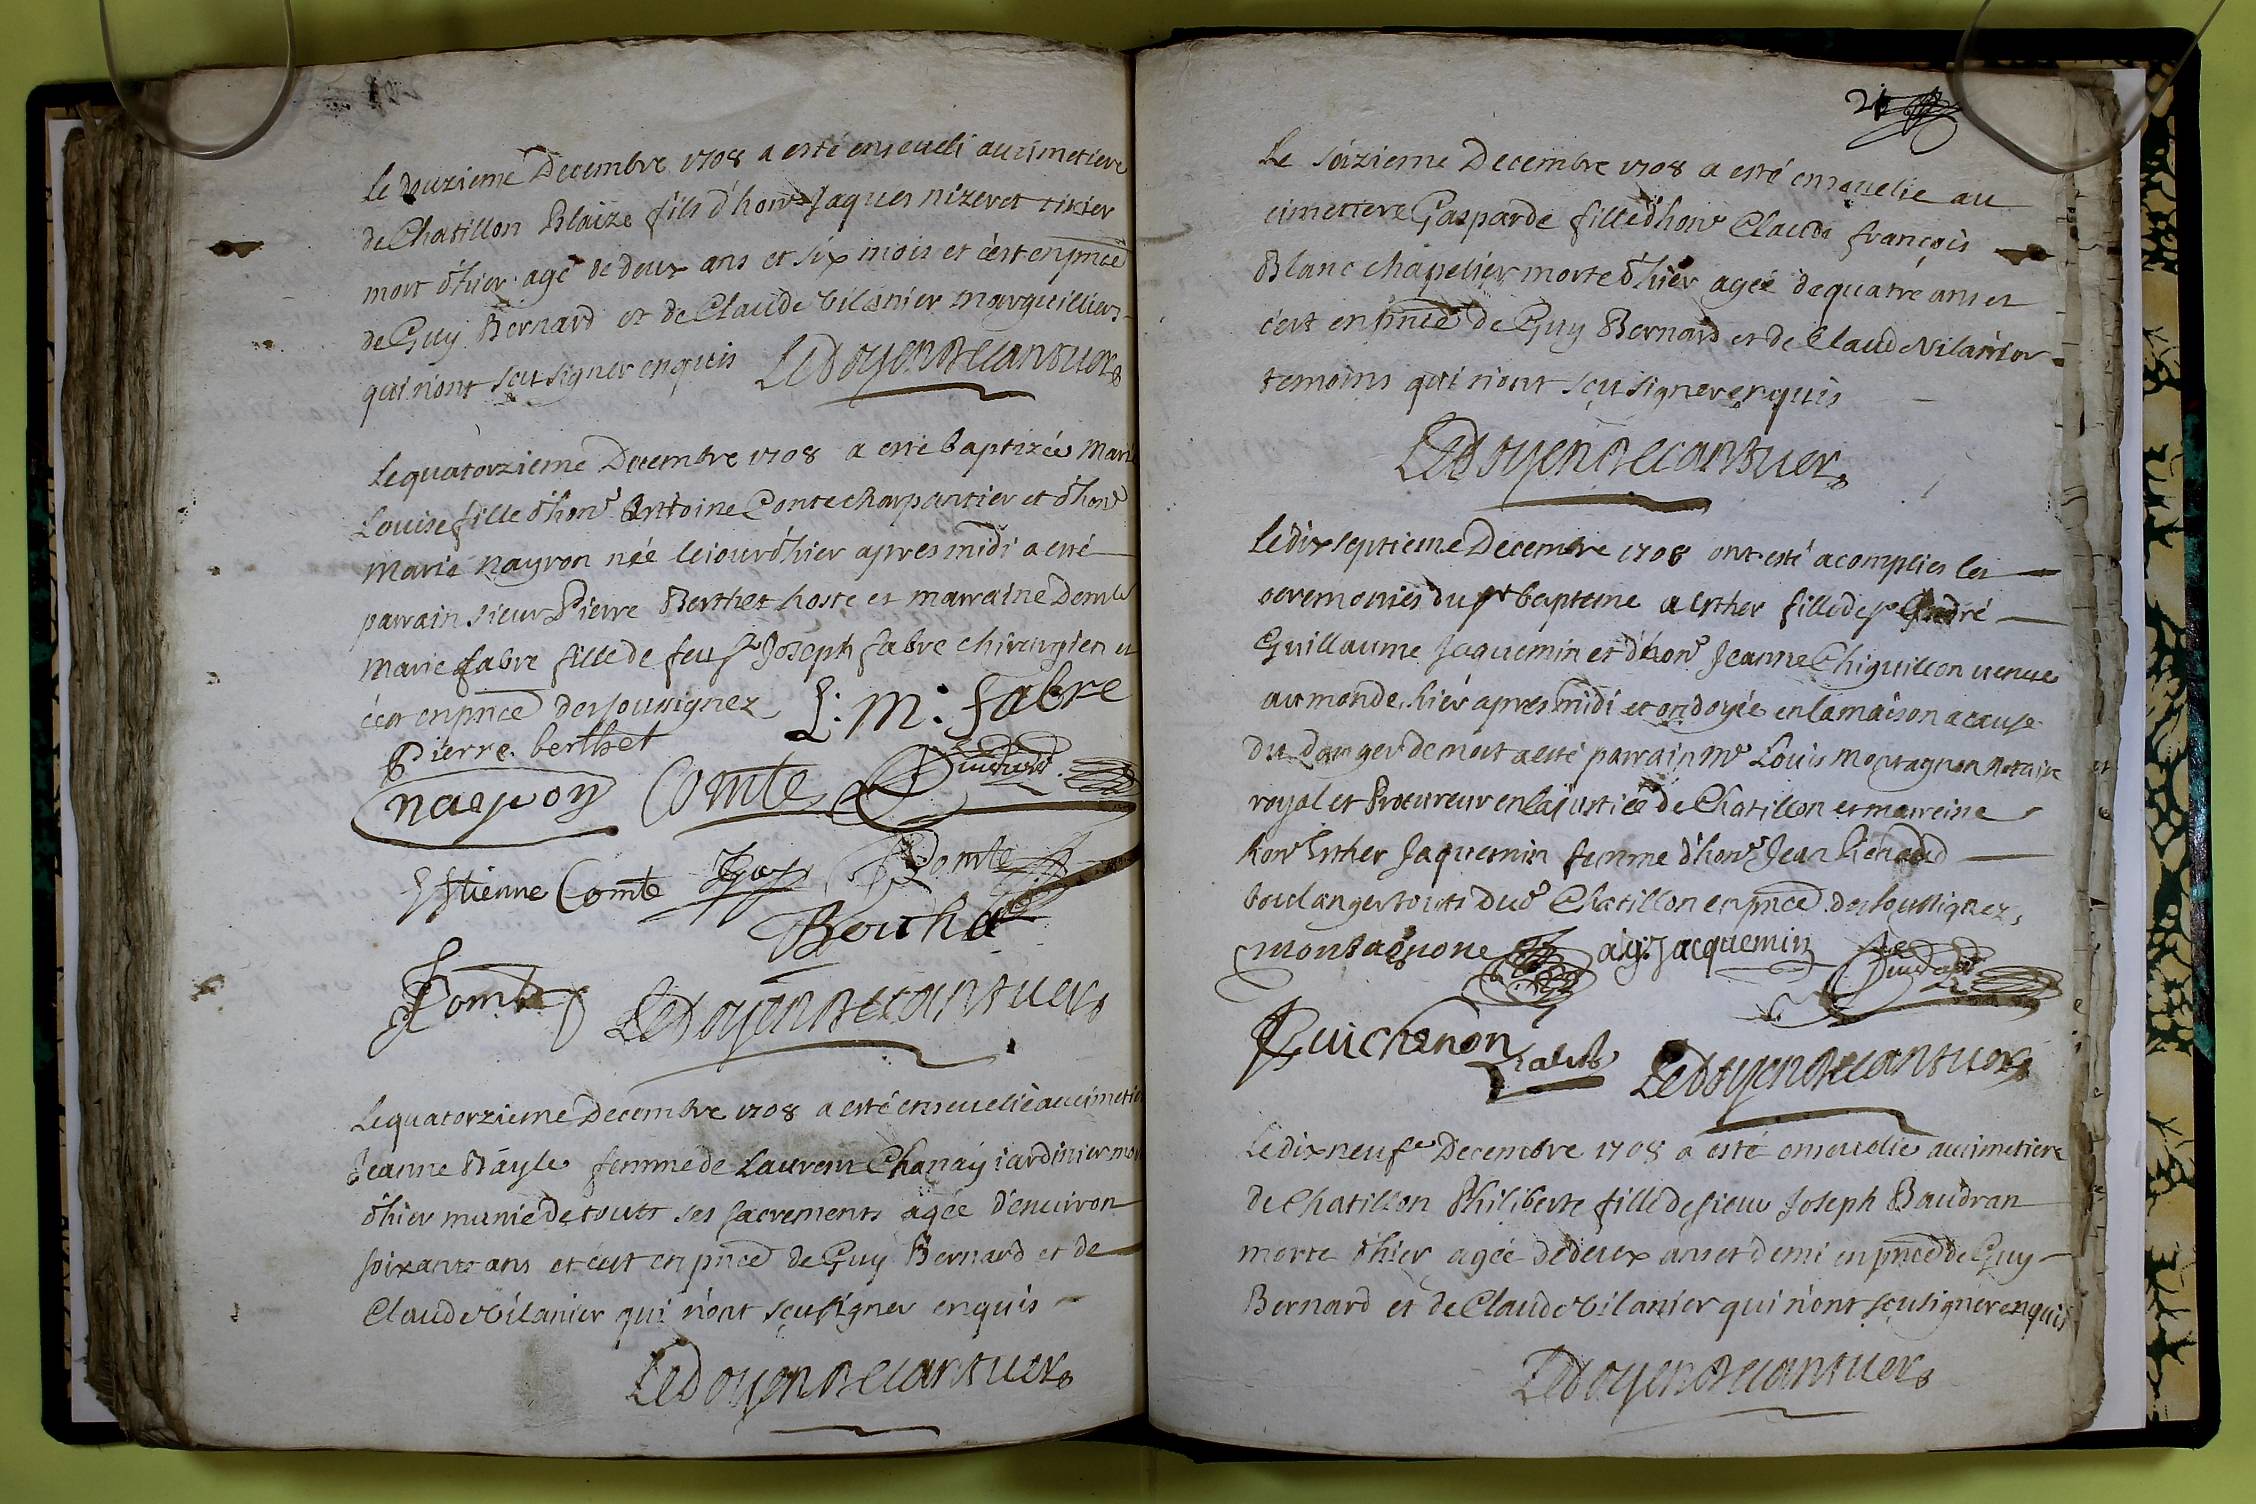 Le douzieme Decembre 1708 a esté enseueli au cimetiere
de Chatillon Blaize fils d'hon^e Jaques nizeret tixier
mort d'hier agé de deux ans et six mois et c'est en pnce
de Guy Bernard et de Claude Vilanier marguilliers
qui n'ont sçu signer enquis Ledoyen Decantuer
Le quatorzieme Decembre 1708 a esté baptizée Marie
Louise fille d'hon^e Antoine Conte charpantier et d'hon^e
Marie nayron née le jour d'hier apres midi a esté
parrain sieur Pierre Berthet hoste et marraine Dem^lle
Marie fabre fille de feu s^r Joseph fabre chirurgien et
c'est en pnce des soussignez L: M: fabre
Pierre berthet
nayron Comte
Estienne Comte Comte
Comte Ledoyen Decantuer
Le quatorzieme Decembre 1708 a esté enseuelie au cimetie
Jeanne Bayle femme de Laurent Chanay iardinier mor
d'hier munie de touts ses sacrements agée d'enuiron
soixante ans et c'est en pnce de Guy Bernard et de
Claude Vilanier qui n'ont sçu signer enquis
Ledoyen Decantuer
Le sizieme Decembre 1708 a esté enseuelie au
cimettere Gasparde fille d'hon^e Claude françois
Blanc chapelier morte d'hier agée de quatre ans et
c'est en pnce de Guy Bernard et de Claude Vilanier
temoins qui n'ont sçu signer enquis
Ledoyen Decantuer
Le dix septieme Decembre 1708 ont esté acomplies les
ceremonies du s^t bapteme a Esther fille de s^r André
Guillaume Jaquemin et d'hon^e Jeanne Chiguillon venue
au monde hier apres midi et ondoyée en la maison a cause
du danger de mort a esté parrain M^e Louis Montagnon Notaire
royal et Procureur en la justice de Chatillon et marreine
hon^e Esther Jaquemin femme d'hon^e Jean Renaud
boulanger touts dud^t Chatillon en pnce des soussignez
montagnone a: g: Jacquemin
Guichenon Ledoyen Decantuer
Le dix neuf^e Decembre 1708 a esté enseuelie au cimetiere
de Chatillon Philiberte fille de sieur Joseph Baudran
morte d'hier agée de deux ans et demi en pnce de Guy
Bernard et de Claude Vilanier qui n'ont sçu signer enquis
Ledoyen Decantuer